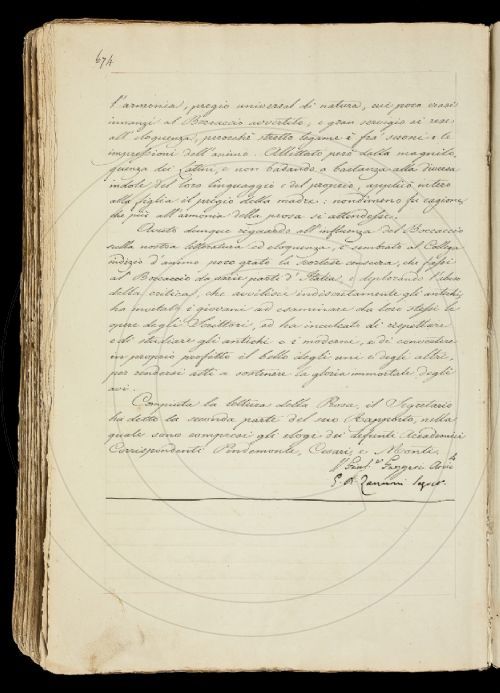 674
l'armonia, pregio universal di natura, cui poco erasi
innanzi al Boccaccio avvertito, e gran servigio si rese
all'eloquenza, perocchè stretto legame è fra' suoni e le
impressioni dell'animo. Allettato però dalla magnilo,
quenza dei Latini, e non badando a bastanza alla diversa
indole del loro linguaggio e del proprio, applicò intero
alla figlia il pregio della madre: nondimeno fu cagione
che più all'armonia della prosa si attendesse.
Avuto dunque riguardo all'influenza del Boccaccio
sulla nostra letteratura ed eloquenza, è sembrato al Collega
indizio d'animo poco grato la scortese censura, che fassi
al Boccaccio da varie parti d'Italia, e deplorando l'abuso
della critica, che avvilisce indiscretamente gli antichi,
ha invitati i giovani ad esaminare da loro stessi le
opere degli Scrittori, ed ha inculcato di rispettare
e di studiare gli antichi e i moderni, e di convertire
in proprio profitto il bello degli uni e degli altri,
per rendersi atti a sostenere la gloria immortale degli
avi.
Compiuta la lettura della Prosa, il Segretario
ha detto la seconda parte del suo Rapporto, nella
quale sono compresi gli elogi dei defunti Accademici
Corrispondenti Pindemonte, Cesari, e Monti.
G. B. Zannoni Segret.